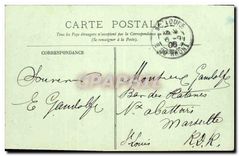 CARTE POSTALE
Tous les Pays étrangers n'acceptent pas la Correspondance au
(Se renseigner à la Poste).
CORRESPONDANCE
Souvenir
E Gandolfe
Monsieur Gandolfe
Bar des Platanes
Nx abattoirs
Marseille
St Louis
B.D.R.